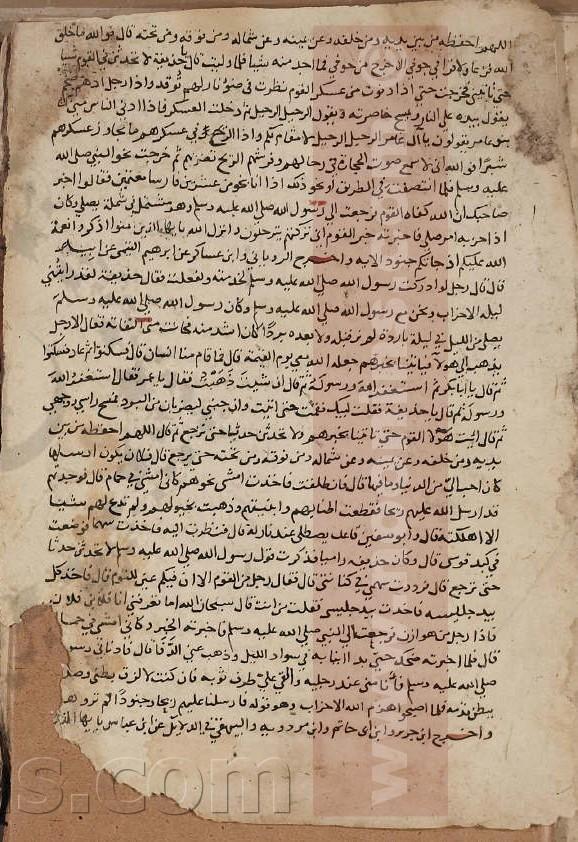 اللهم احفظه من بين يديه ومن خلفه وعن يمينه وعن شماله ومن فوقه ومن تحته قال فوالله ما خلق
الله فزعا ولا قرا في جوفي الا خرج من جوفي فما اجد منه شيا فلما وليت قال يا حذيفة لا تحدثن في القوم شيا
حتى تاتيني فخرجت حتى اذا دنوت من عسكر القوم نظرت في ضوء نار لهم توقد واذا رجل ادهم ضخم
يقول بيده على النار ويمسح خاصرته ويقول الرحيل الرحيل ثم دخلت العسكر فاذا ادنى الناس مني
بنو عامر يقولون يا آل عامر الرحيل الرحيل لا مقام لكم واذا الريح في عسكرهم ما تجاوز عسكرهم
شبرا فوالله اني لاسمع صوت الحجارة في رحالهم وفرشهم الريح تضربهم ثم خرجت نحو النبي صلى الله
عليه وسلم فلما انتصفت في الطريق او نحو ذلك اذا انا بنحو من عشرين فارسا معتمين فقالوا اخبر
صاحبك ان الله كفاه القوم فرجعت الى رسول الله صلى الله عليه وسلم وهو مشتمل في شملة يصلي وكان
اذا حزبه امر صلى فاخبرته خبر القوم اني تركتهم يترحلون وانزل الله يا يها الذين امنوا اذكروا نعمة
الله عليكم اذ جاتكم جنود الاية واخرج الروياني وابن عساكر عن ابرهيم التيمي عن ابيه
قال قال رجل لو ادركت رسول الله صلى الله عليه وسلم لخدمته ولفعلت فقال حذيفة لقد رايتني
ليلة الاحزاب ونحن مع رسول الله صلى الله عليه وسلم وكان رسول الله صلى الله عليه وسلم
يصلي من الليل في ليلة باردة لم نر قبله ولا بعده بردا كان اشد منه فحانت مني التفاتة فقال الا رجل
يذهب الى هولا فياتينا بخبرهم جعله الله معي يوم القيمة قال فما قام منا انسان قال فسكتوا ثم عاد فسكتوا
ثم قال يا ابا بكر ثم استغفر الله ورسوله ثم قال ان شيت ذهبت فقال يا عمر فقال استغفر الله
ورسوله ثم قال يا حذيفة فقلت لبيك فقمت حتى اتيت وان جنبي ليضربان من البرد فمسح راسي ووجهي
ثم قال ايت هولا القوم حتى تاتينا بخبرهم ولا تحدثن حدثا حتى ترجع ثم قال اللهم احفظه من بين
يديه ومن خلفه وعن يمينه وعن شماله ومن فوقه ومن تحته حتى يرجع قال فلان يكون ارسلها
كان احب الي من الدنيا وما فيها قال فانطلقت فاخذت امشي نحوهم كاني امشي في حمام قال فوجدتهم
قد ارسل الله عليهم ريحا فقطعت اطنابهم وابنيتهم وذهبت بخيولهم ولم تدع لهم شيا
الا اهلكته قال وابو سفين قاعد يصطلي عند نار له قال فنظرت اليه فاخذت سهما فوضعت
في كبد قوسي قال وكان حذيفة راميا فذكرت قول رسول الله صلى الله عليه وسلم لا تحدثن حدثا
حتى ترجع قال فرددت سهمي في كنانتي قال فقال رجل من القوم الا ان فيكم عين للقوم قال فاخذ كل
بيد جليسه فاخذت بيد جليسي فقلت من انت قال سبحان الله اما تعرفني انا فلان بن فلان
فاذا رجل من هوازن فرجعت الى النبي صلى الله عليه وسلم فاخبرته الخبر وكاني امشي في حمام
قال فلما اخبرته ضحك حتى بدا انيابه في سواد الليل وذهب عني الدفا قال فادناني رسول
صلى الله عليه وسلم فانامني عند رجليه والقى علي طرف ثوبه فان كنت لالزق بطني وصدري
ببطن قدمه فلما اصبحوا هزم الله الاحزاب وهو قوله فارسلنا عليهم ريحا وجنودا لم تروها
واخرج ابن جرير وابن ابي حاتم وابن مردويه والبيهقي في الدلايل عن ابن عباس يا يها الذين